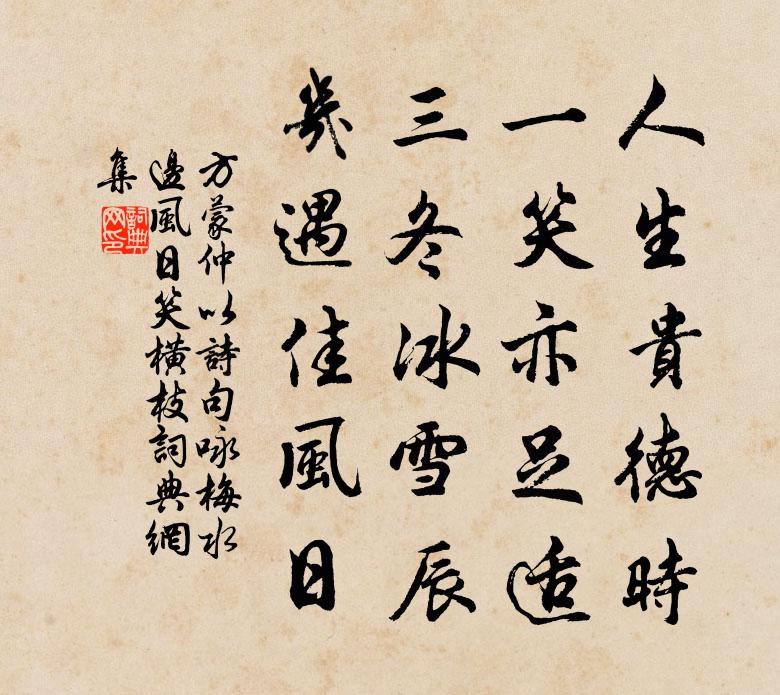 人生貴德時
一笑亦足適
三冬冰雪辰
幾遇佳風日
方蒙仲以詩句咏梅水
邊風日笑橫枝詞典網
集
詞典網印